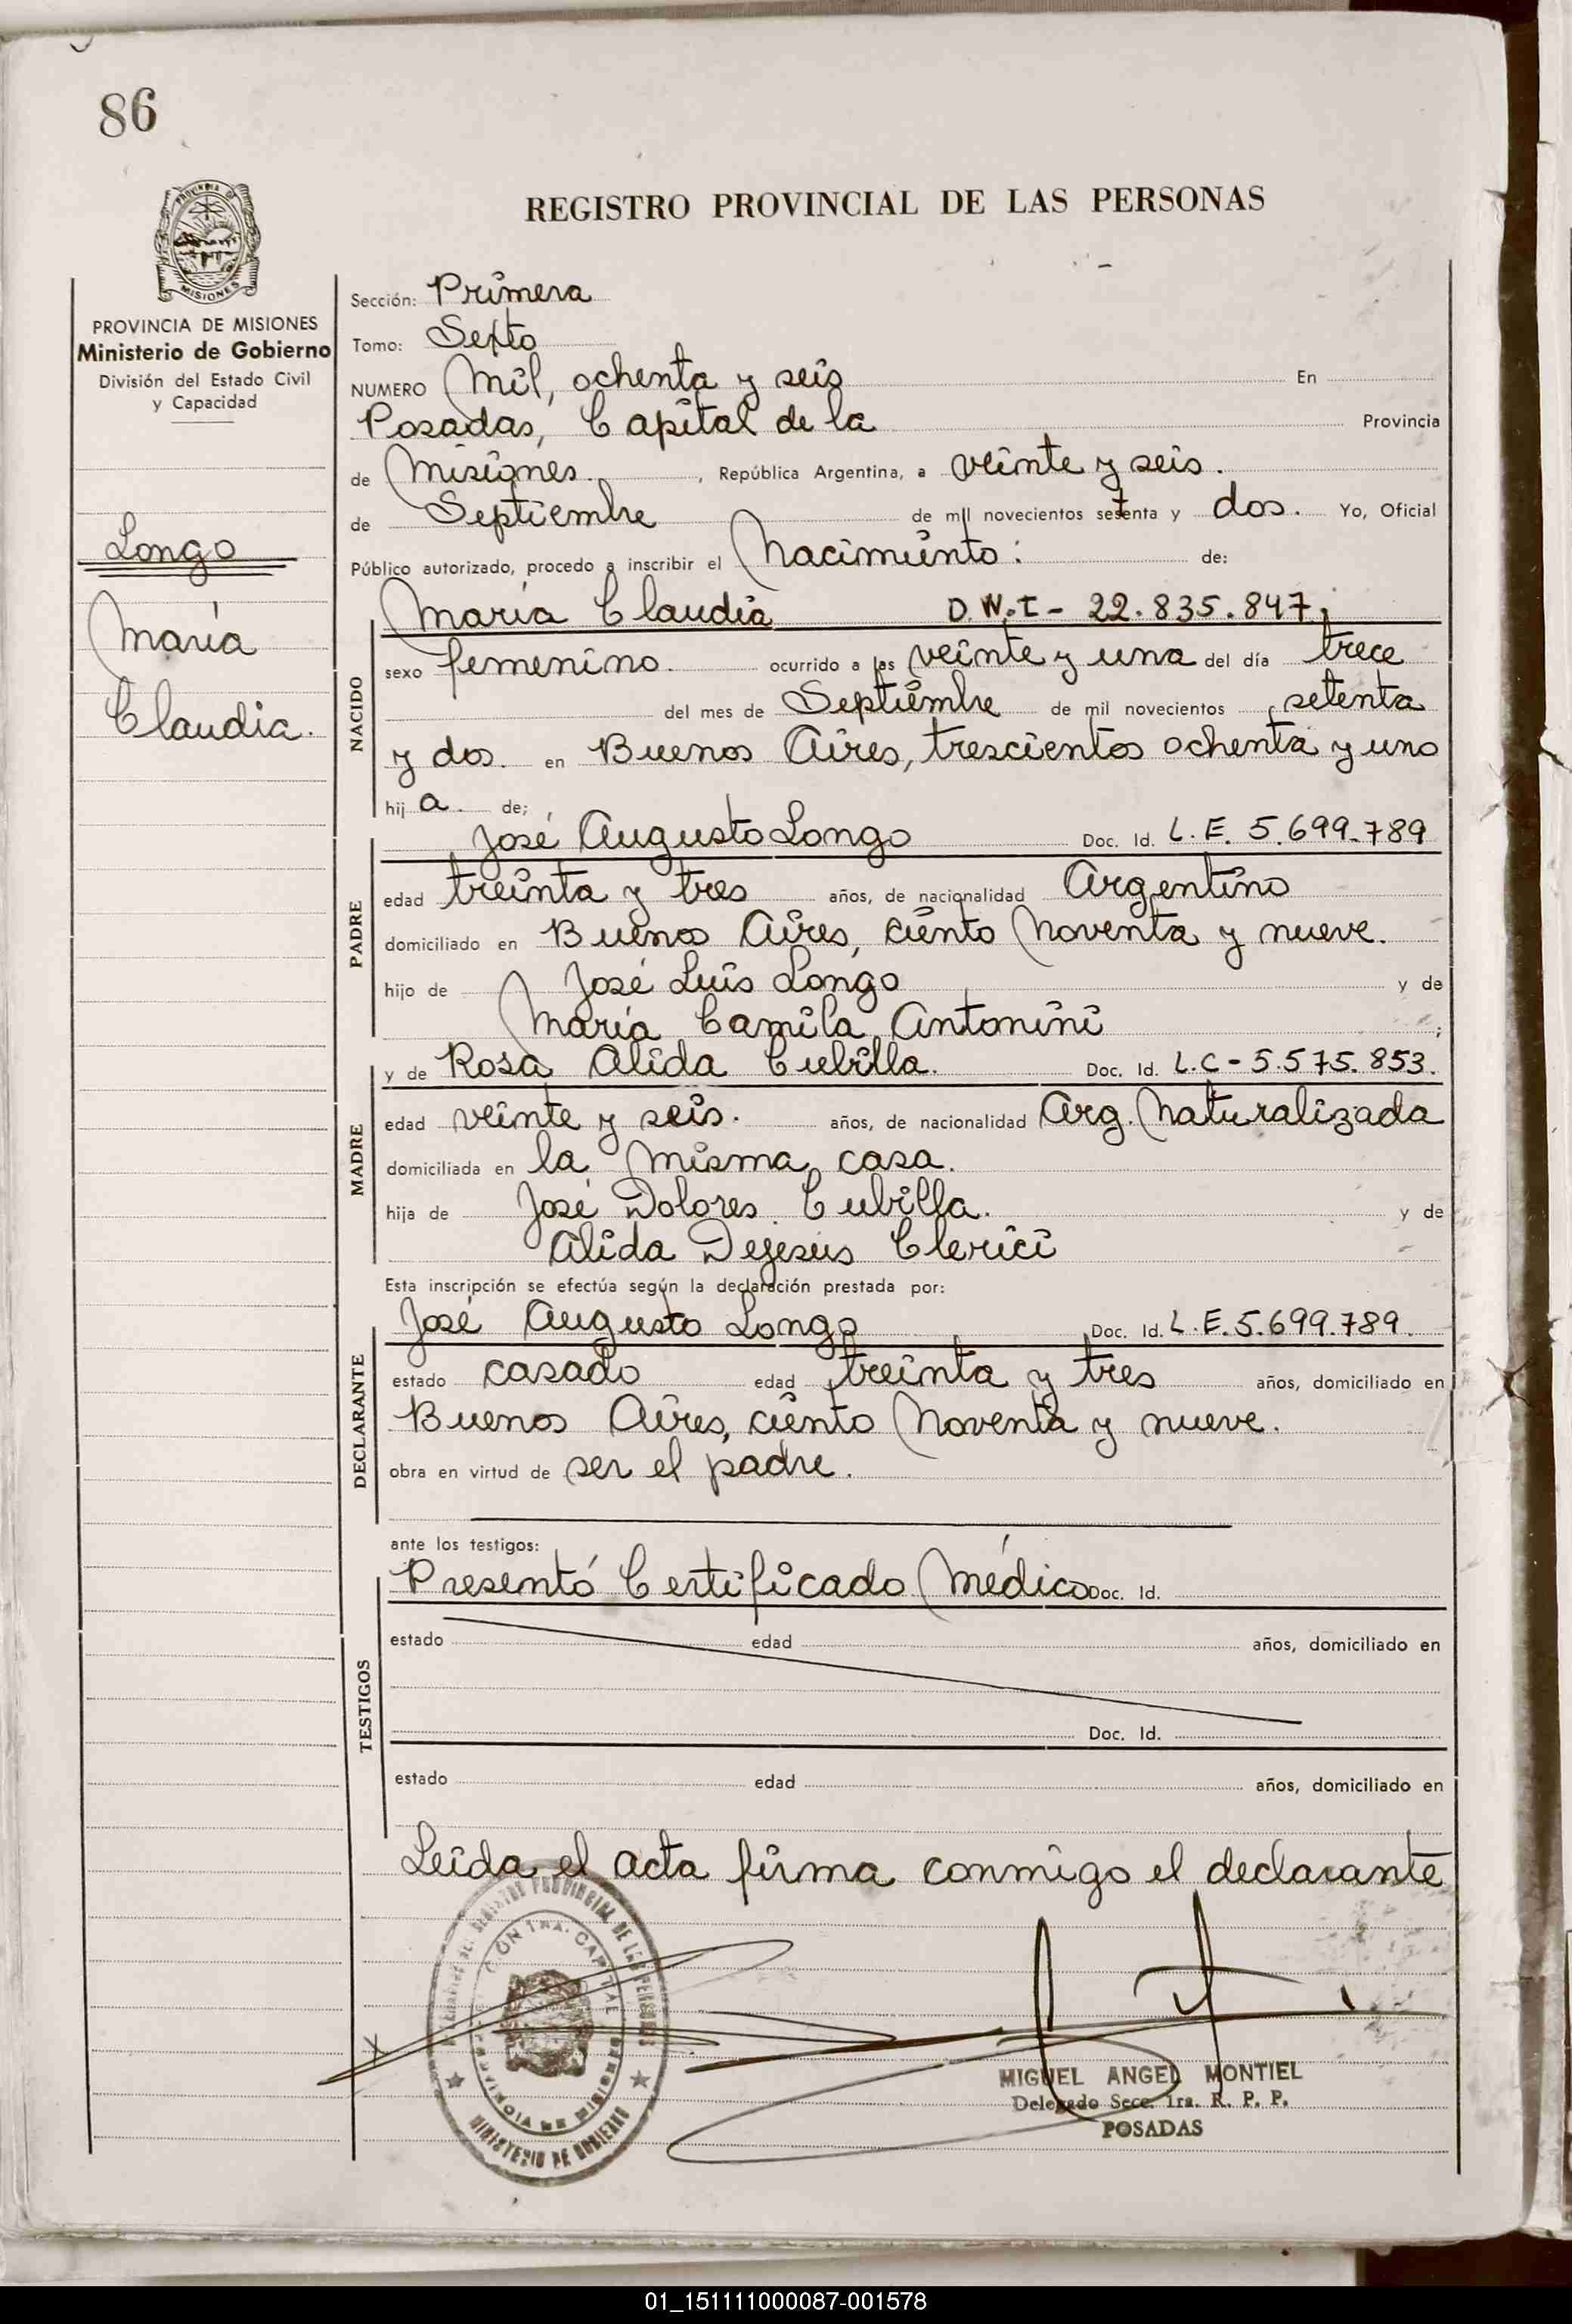 86
REGISTRO PROVINCIAL DE LAS PERSONAS
PROVINCIA DE MISIONES
Ministerio de Gobierno
División del Estado Civil
y Capacidad
Longo
María
Claudia.
Sección: Primera
Tomo: Sexto
NUMERO Mil, ochenta y seis En
Posadas, Capital de la Provincia
de Misiones. , República Argentina, a veinte y seis.
de Septiembre de mil novecientos setenta y dos. Yo, Oficial
Público autorizado, procedo a inscribir el Nacimiento: de:
NACIDO
María Claudia D.N.I- 22.835.847;
sexo femenino. ocurrido a las veinte y una del día trece
del mes de Septiembre de mil novecientos setenta
y dos. en Buenos Aires, trescientos ochenta y uno
hij a. de;
PADRE
José Augusto Longo Doc. Id. L.E. 5.699.789
edad treinta y tres años, de nacionalidad Argentino
domiciliado en Buenos Aires, ciento noventa y nueve.
hijo de José Luis Longo y de
María Camila Antonini ;
MADRE
y de Rosa Alida Cubilla. Doc. Id. L.C-5.575.853.
edad veinte y seis. años, de nacionalidad Arg. Naturalizada
domiciliada en la misma casa.
hija de José Dolores Cubilla. y de
Alida Dejesús Clerici
Esta inscripción se efectúa según la declaración prestada por:
DECLARANTE
José Augusto Longo Doc. Id. L.E.5.699.789.
estado casado edad treinta y tres años, domiciliado en
Buenos Aires, ciento noventa y nueve.
obra en virtud de ser el padre.
ante los testigos:
TESTIGOS
Presentó Certificado Médico Doc. Id.
estado edad años, domiciliado en
Doc. Id.
estado edad años, domiciliado en
Leída el acta firma conmigo el declarante
MIGUEL ANGEL MONTIEL
Delegado Secc. 1ra. R. P. P.
POSADAS
MINISTERIO DE GOBIERNO
01_151111000087-001578